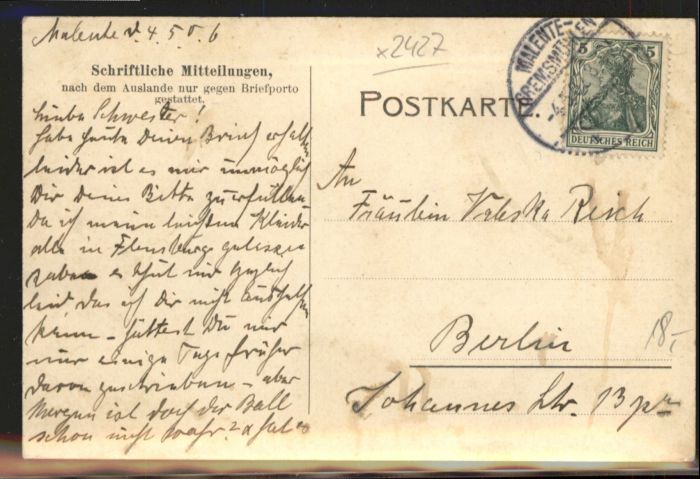 Malente d. 4.5.06
x2427
Schriftliche Mitteilungen,
nach dem Auslande nur gegen Briefporto
gestattet.
POSTKARTE.
MALENTE-
GREMSMÜHLEN
5 5
DEUTSCHES REICH
Liebe Schwester!
habe heute Deinen Brief erhalten
leider ist es mir unmöglich
Dir Deine Bitte zu erfüllen
da ich meine Kleider
alle in Flensburg gelassen
habe es thut mir
leid das ich dir nicht aushelfen
kann - hättest Du mir
nur einige Tage früher
davon geschrieben - aber
Morgen ist doch der Ball
schon nicht wahr?
An
Fräulein Valeska Resch
Berlin
Johannes Str. 13 pr
18,-